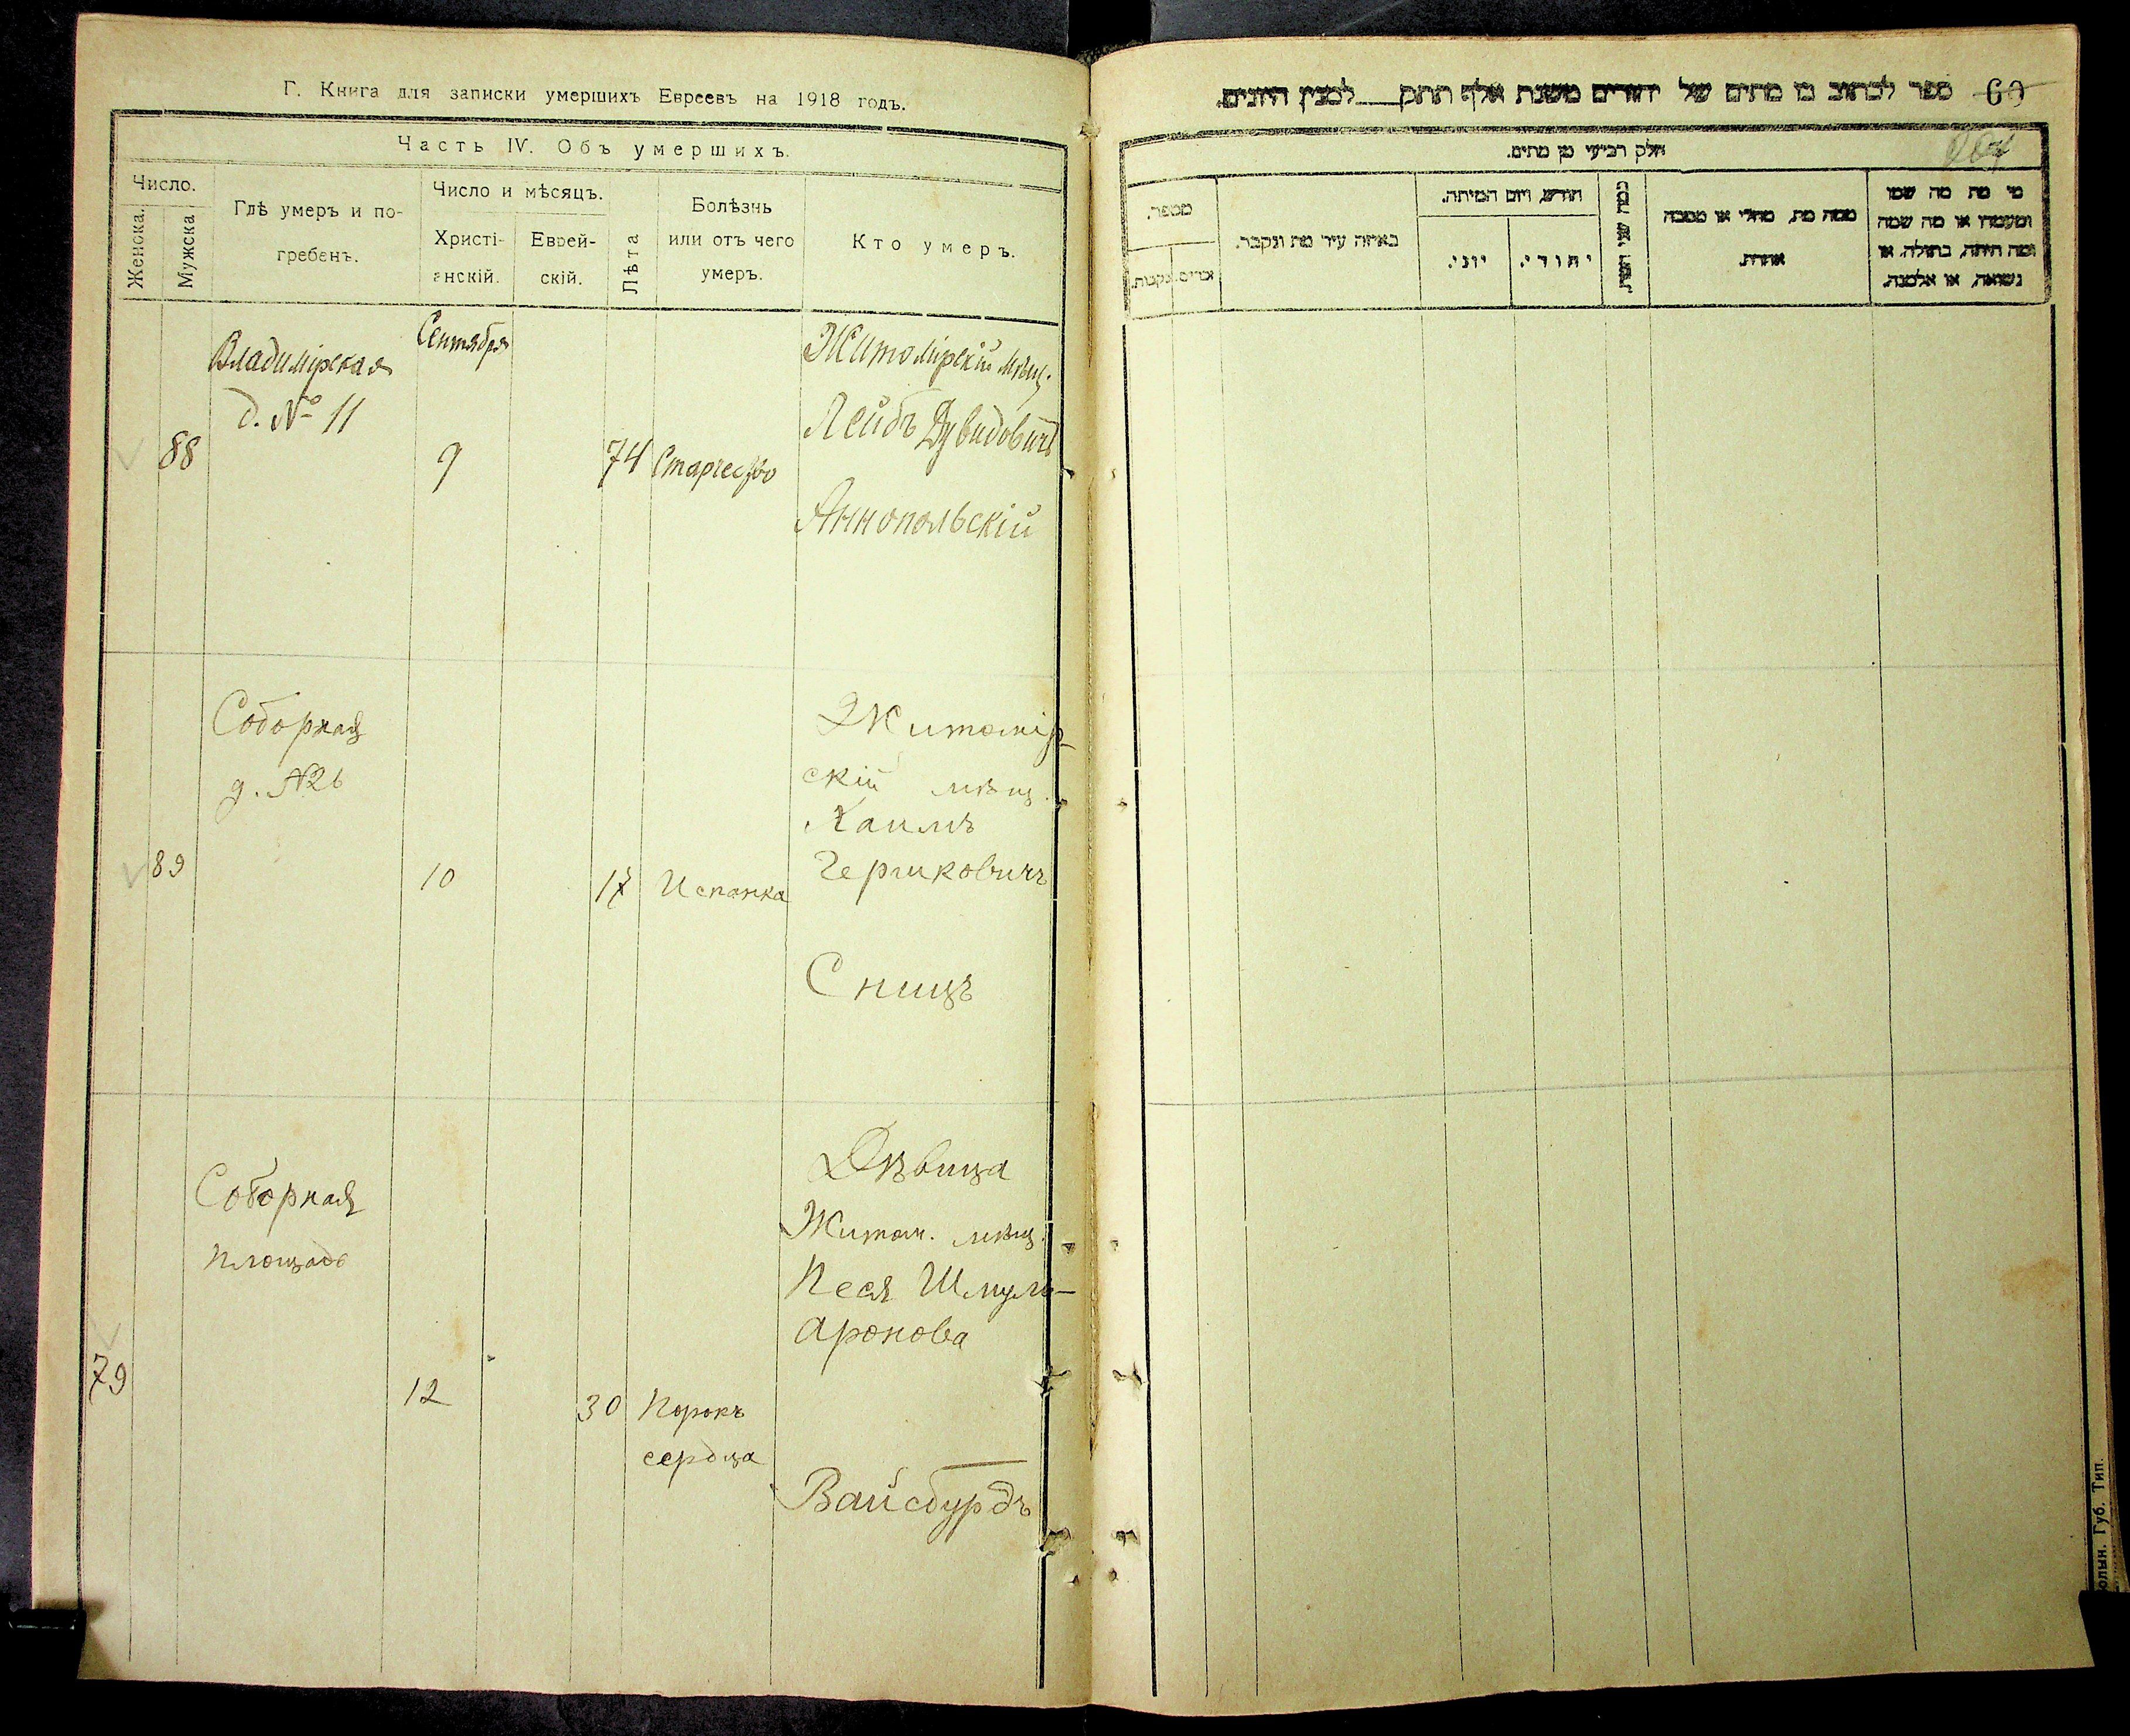 Г. Книга для записки умершихъ Евреевъ на 1918 годъ.
Часть IV. Объ умершихъ.
Число.
Женска.
Мужска
Гдѣ умеръ и по-
гребенъ.
Число и мѣсяцъ.
Христі-
анскій.
Еврей-
скій.
Лѣта
Болѣзнь
или отъ чего
умеръ.
Кто умеръ.
88
Владимірская
д. № 11
Сентября
9
74
Старчество
Житомірскій мѣщ.
Лейбъ Дувидовичъ
Аннопольскій
89
Соборная
д. №26
10
17
Испанка
Житомір-
скій мѣщ.
Хаимъ
Гершковичъ
Сницъ
79
Соборная
площадь
12
30
Порокъ
сердца
Дѣвица
Житом. мѣщ.
Песя Шмуль-
Аронова
Вайсбурдъ
ספר לכתוב בו מתים של יהודים משנת אלף תתק לממנין היונים.
60
חלק רביעי מן מתים.
מספר.
זכרים.
נקבות.
באיזה עיר מת ונקבר.
חודש, ויום המיתה.
יוני.
יהודי.
כמה שני חייו
ממה מת, מחלי או מסבה
אחרת.
מי מת מה שמו
ומעמדו או מה שמה
ומה היתה, בתולה, או
נשואה, או אלמנה.
олын. Губ. Тип.